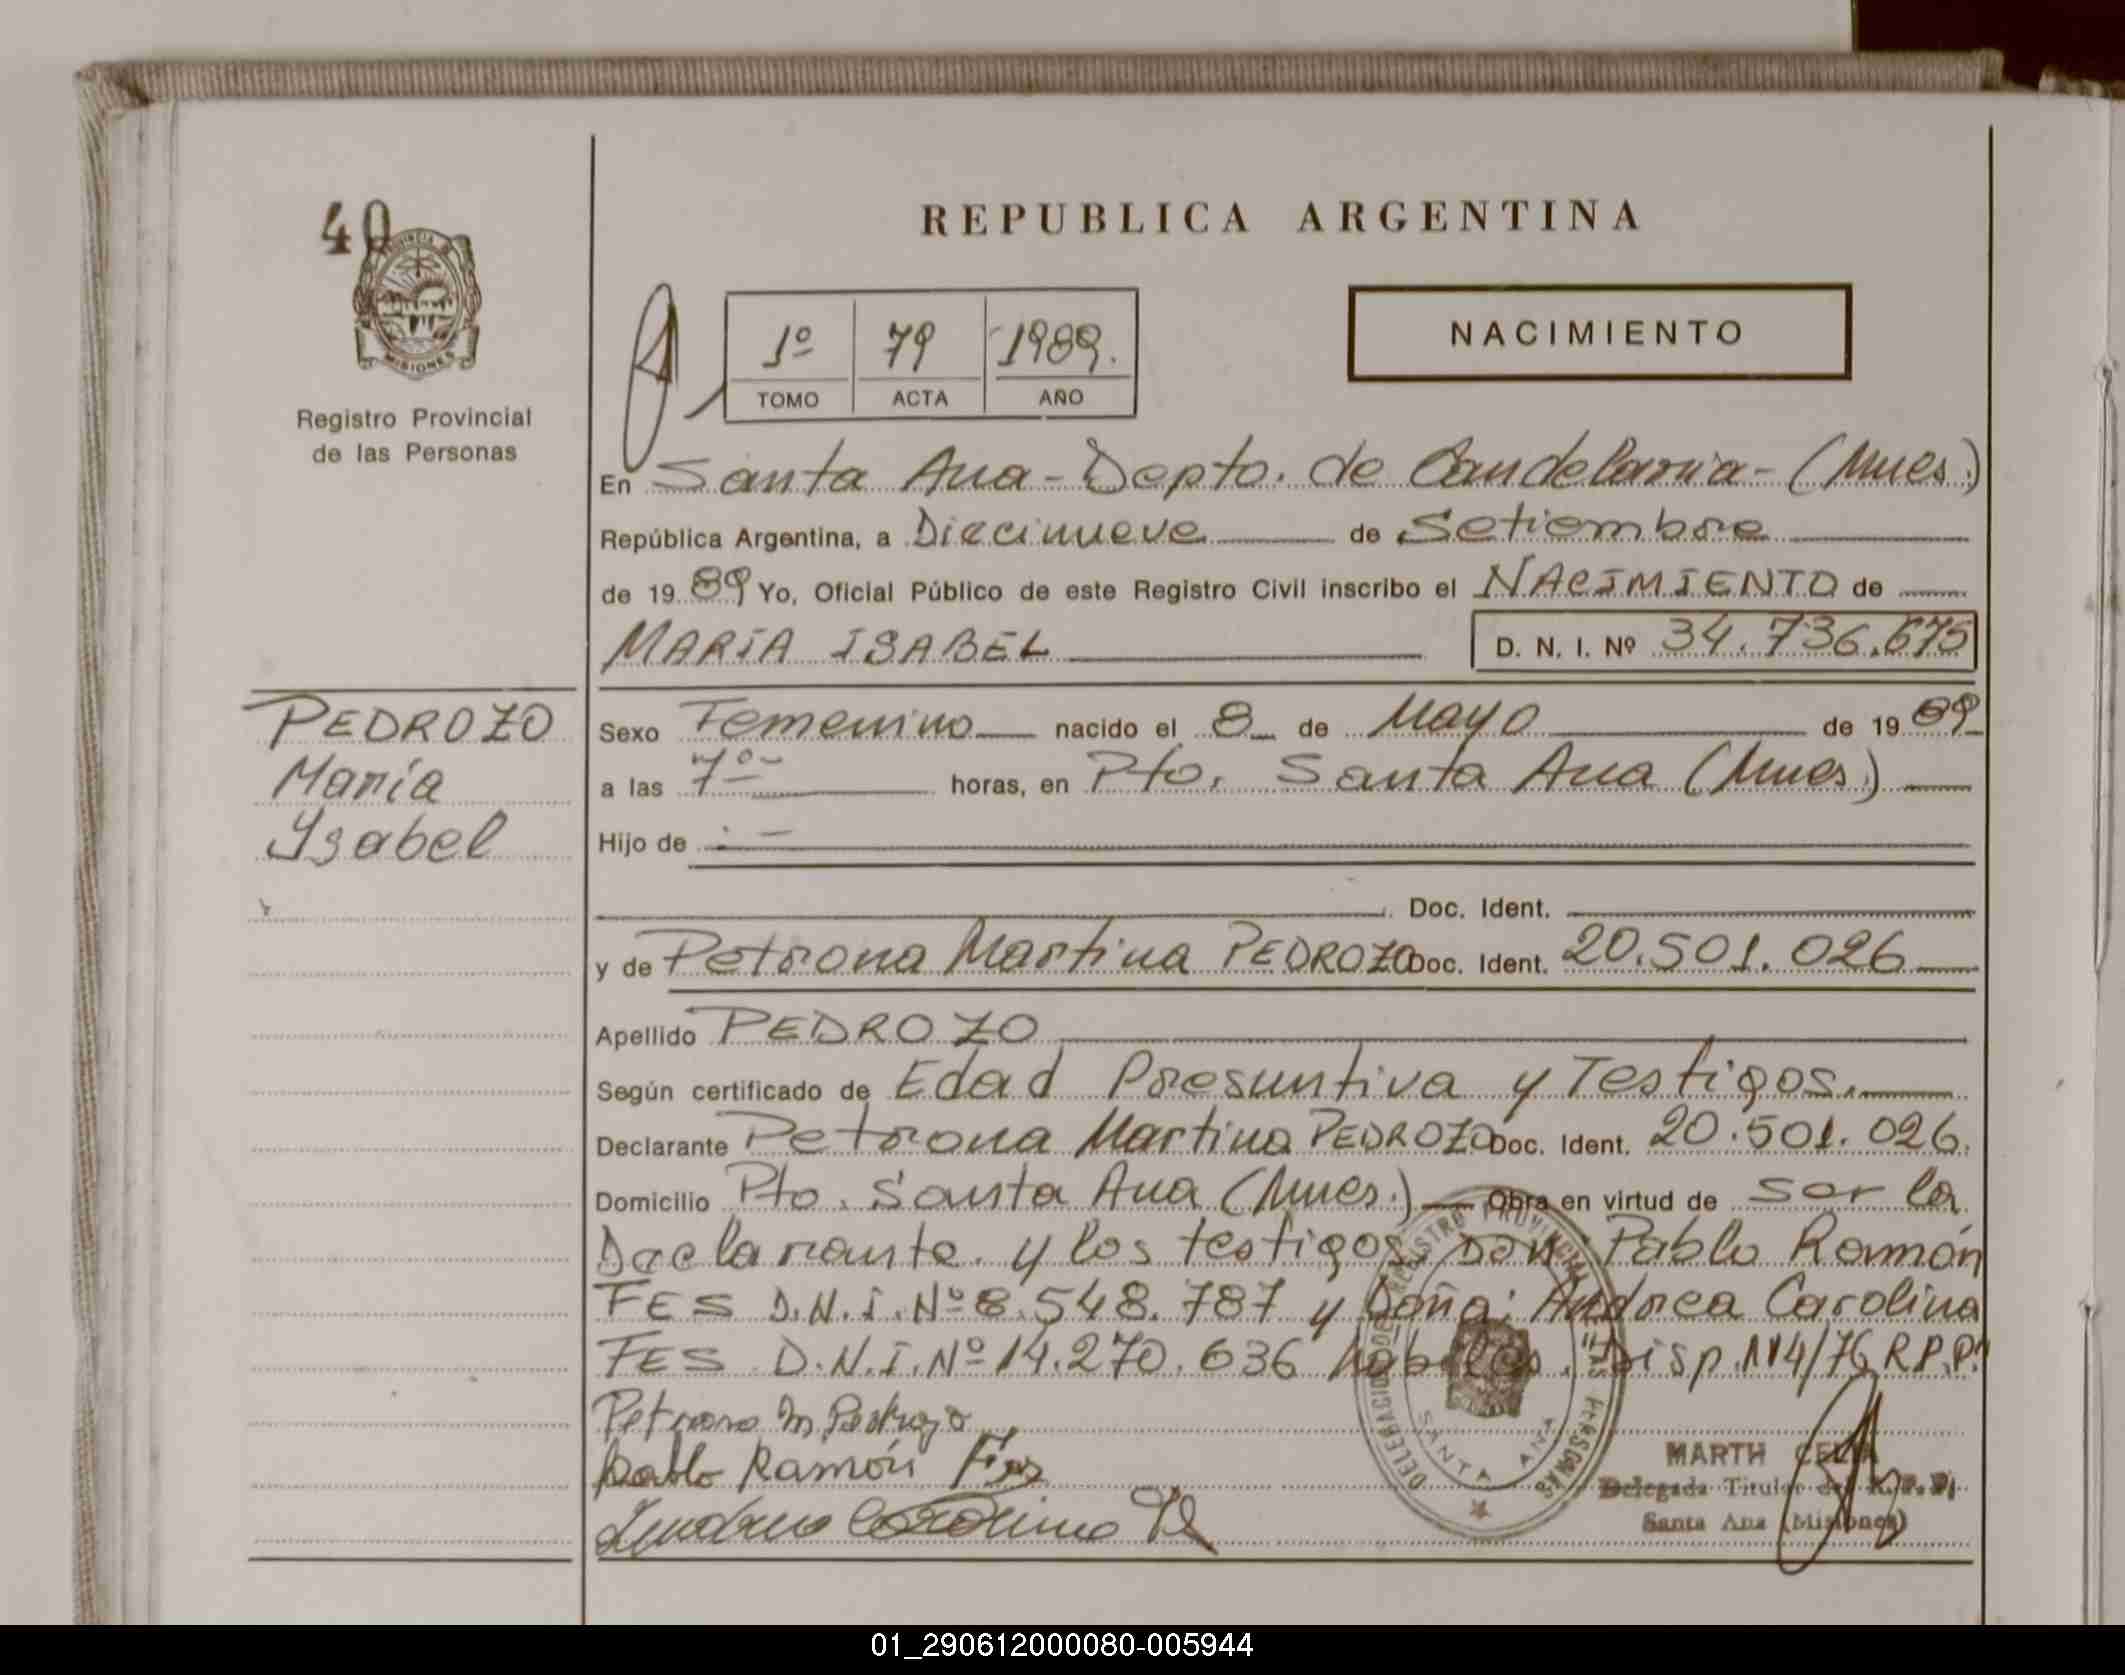 40
PROVINCIA DE
MISIONES
Registro Provincial
de las Personas
REPUBLICA ARGENTINA
1º 79 1989.
TOMO ACTA AÑO
NACIMIENTO
En Santa Ana - Depto. de Candelaria - (Mnes.)
República Argentina, a Diecinueve de Setiembre
de 1989 Yo, Oficial Público de este Registro Civil inscribo el NACIMIENTO de
MARIA ISABEL D. N. I. Nº 34.736.675
PEDROZO
Maria
Ysabel
Sexo Femenino nacido el 8 de Mayo de 1989
a las 7º horas, en Pto. Santa Ana (Mnes.)
Hijo de
Doc. Ident.
y de Petrona Martina PEDROZO Doc. Ident. 20.501.026
Apellido PEDROZO
Según certificado de Edad Presuntiva y Testigos.
Declarante Petrona Martina PEDROZO Doc. Ident. 20.501.026.
Domicilio Pto. Santa Ana (Mnes.) Obra en virtud de ser la
Declarante y los testigos Don: Pablo Ramón
FES D.N.I. Nº 8.548.787 y Doña: Andrea Carolina
FES D.N.I. Nº 14.270.636 habiles. Disp. 114/76 R.P.P.
Petrona M Pedrozo
Pablo Ramón Fes
SANTA ANA
MARTH CELIA
Delegada Titular del R.P.P.
Santa Ana (Misiones)
01_290612000080-005944